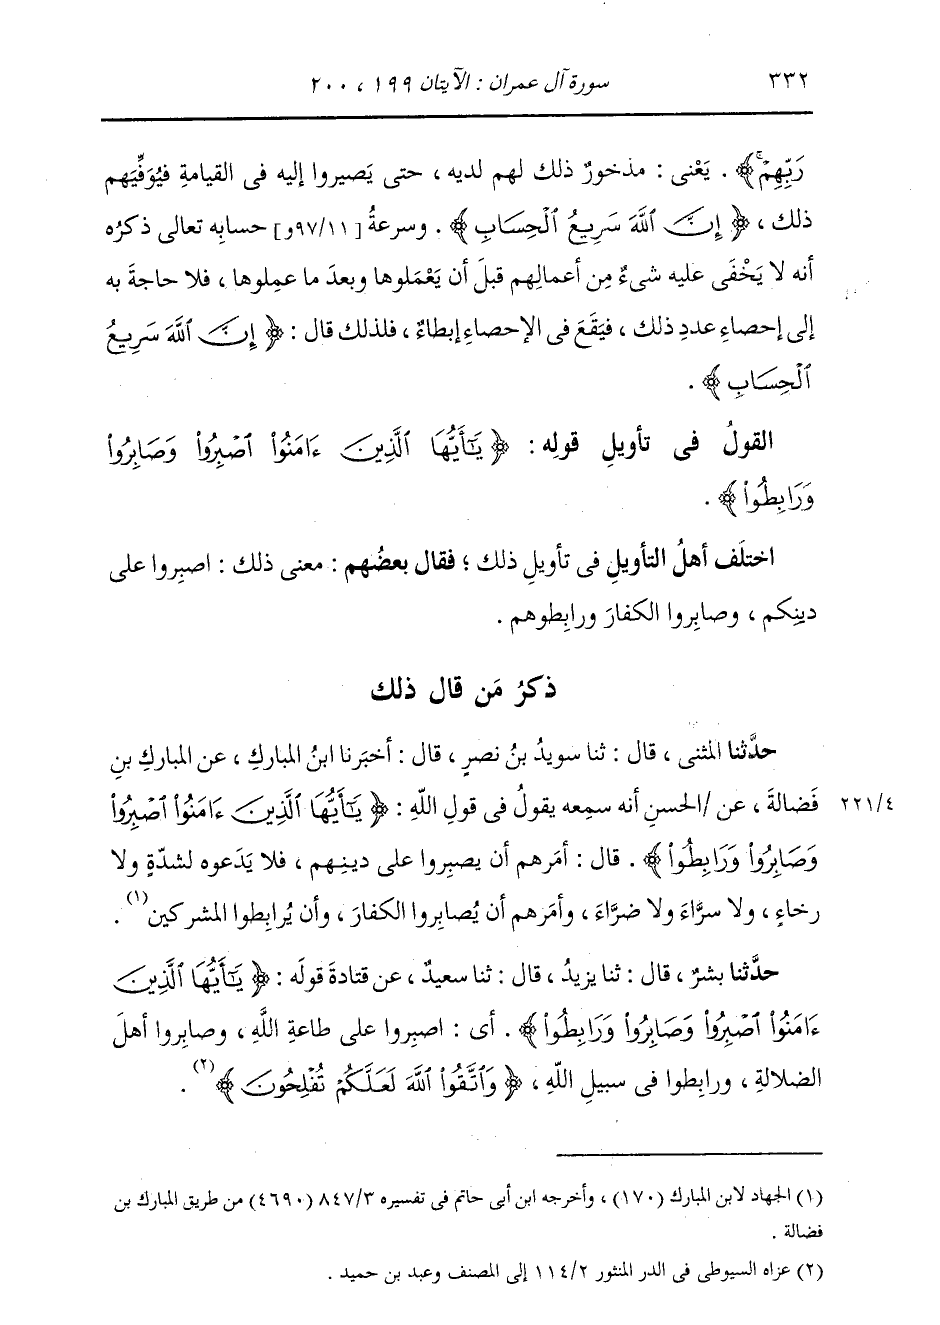 ٣٣٢ سورة آل عمران : الآيتان ١٩٩ ، ٢٠٠
رَبِّهِمْۗ﴾ . يَعْنى : مذخورٌ ذلك لهم لديه ، حتى يَصيروا إليه فى القيامةِ فيُوَفِّيَهم
ذلك ، ﴿ إِنَّ ٱللَّهَ سَرِيعُ ٱلْحِسَابِ ﴾ . وسرعةُ [٩٧/١١و] حسابِه تعالى ذكرُه
أنه لا يَخْفَى عليه شىءٌ مِن أعمالِهم قبلَ أن يَعْمَلوها وبعدَ ما عمِلوها ، فلا حاجةَ به
إلى إحصاءِ عددِ ذلك ، فيَقَعَ فى الإحصاءِ إبطاءٌ ، فلذلك قال : ﴿ إِنَّ ٱللَّهَ سَرِيعُ
ٱلْحِسَابِ ﴾ .
القولُ فى تأويلِ قولِه : ﴿ يَٰٓأَيُّهَا ٱلَّذِينَ ءَامَنُوا۟ ٱصْبِرُوا۟ وَصَابِرُوا۟
وَرَابِطُوا۟ ﴾ .
اختلَف أهلُ التأويلِ فى تأويلِ ذلك ؛ فقال بعضُهم : معنى ذلك : اصبِروا على
دينِكم ، وصابِروا الكفارَ ورابِطوهم .
ذكرُ مَن قال ذلك
حدَّثنا المثنى ، قال : ثنا سويدُ بنُ نصرٍ ، قال : أخبَرنا ابنُ المباركِ ، عن المباركِ بنِ
٢٢١/٤ فَضالةَ ، عن /الحسنِ أنه سمِعه يقولُ فى قولِ اللَّهِ : ﴿ يَٰٓأَيُّهَا ٱلَّذِينَ ءَامَنُوا۟ ٱصْبِرُوا۟
وَصَابِرُوا۟ وَرَابِطُوا۟ ﴾ . قال : أمَرهم أن يصبِروا على دينِهم ، فلا يَدَعوه لشدّةٍ ولا
رخاءٍ ، ولا سرَّاءَ ولا ضرَّاءَ ، وأمَرهم أن يُصابِروا الكفارَ ، وأن يُرابِطوا المشركين(١) .
حدَّثنا بشرٌ ، قال : ثنا يزيدُ ، قال : ثنا سعيدٌ ، عن قتادةَ قولَه : ﴿ يَٰٓأَيُّهَا ٱلَّذِينَ
ءَامَنُوا۟ ٱصْبِرُوا۟ وَصَابِرُوا۟ وَرَابِطُوا۟ ﴾ . أى : اصبِروا على طاعةِ اللَّهِ ، وصابِروا أهلَ
الضلالةِ ، ورابِطوا فى سبيلِ اللَّهِ ، ﴿ وَٱتَّقُوا۟ ٱللَّهَ لَعَلَّكُمْ تُفْلِحُونَ ﴾(٢) .
(١) الجهاد لابن المبارك (١٧٠) ، وأخرجه ابن أبى حاتم فى تفسيره ٨٤٧/٣ (٤٦٩٠) من طريق المبارك بن
فضالة .
(٢) عزاه السيوطى فى الدر المنثور ١١٤/٢ إلى المصنف وعبد بن حميد .